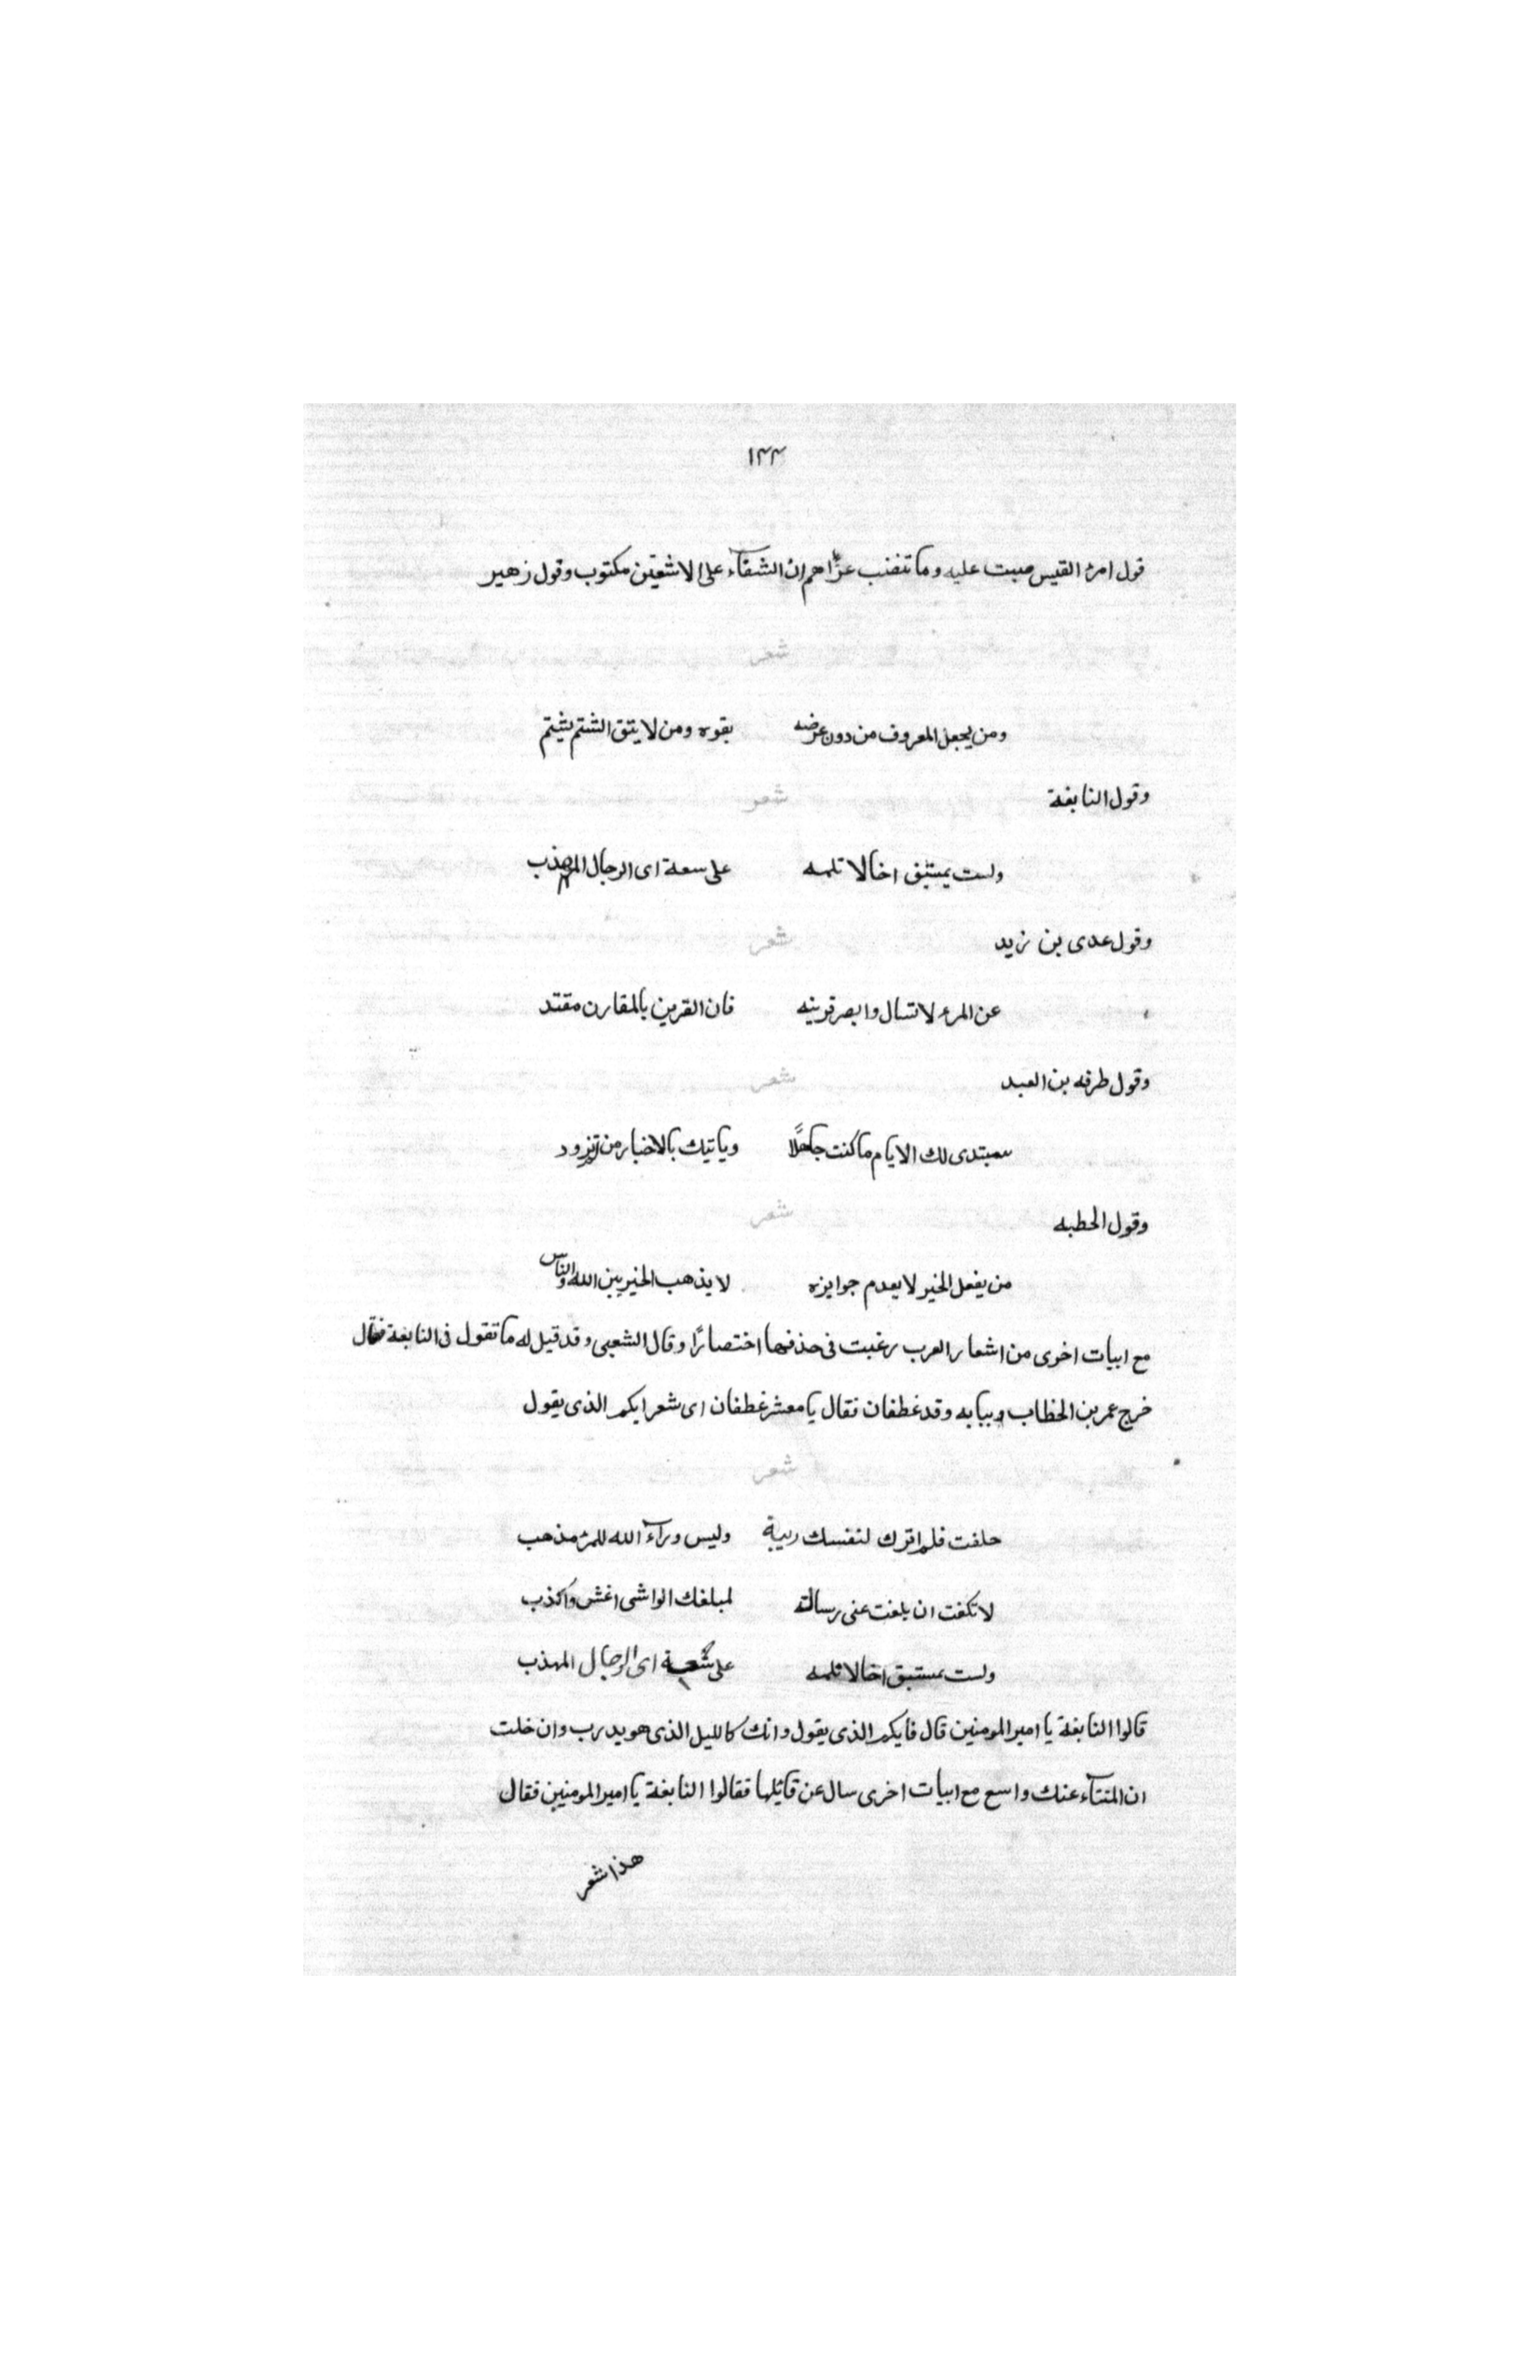 ١٣٣
قول امرء القيس صبت عليه وما تنضب عزاهم ان الشقآء على الاشقين مكتوب وقول زهير
شعر
ومن يجعل المعروف من دون عرضه بقوه ومن لا يتق الشتم يشتم
وقول النابغة شعر
ولست بمستبق اخا لا تلمه على سعة اى الرجال المهذب
وقول عدى بن زيد شعر
عن المرء لا تسال وابصر قرينه فان القرين بالمقارن مقتد
وقول طرفه بن العبد شعر
ستبدى لك الايام ما كنت جاهلًا وياتيك بالاخبار من تزود
وقول الحطبه شعر
من يفعل الخير لا يعدم جوايزه لا يذهب الخير بين الله والناس
مع ابيات اخرى من اشعار العرب رغبت فى حذفها اختصارًا وقال الشعبى وقد قيل له ما تقول فى النابغة فقال
خرج عمر بن الخطاب وببابه وقد غطفان فقال يا معشر غطفان اى شعرايكم الذى يقول
شعر
حلفت فلم اترك لنفسك ريبة وليس ورآء الله للمرء مذهب
لا تكفت ان بلغت عنى رسالة لمبلغك الواشى اغش واكذب
ولست بمستبق اخا لا تلمه على شعبة اى الرجال المهذب
قالوا النابغة يا امير المومنين قال فايكم الذى يقول وانك كالليل الذى هو يدرب وان خلت
ان المنتآء عنك واسع مع ابيات اخرى سال عن قائلها فقالوا النابغة يا امير المومنين فقال
هذا شعر